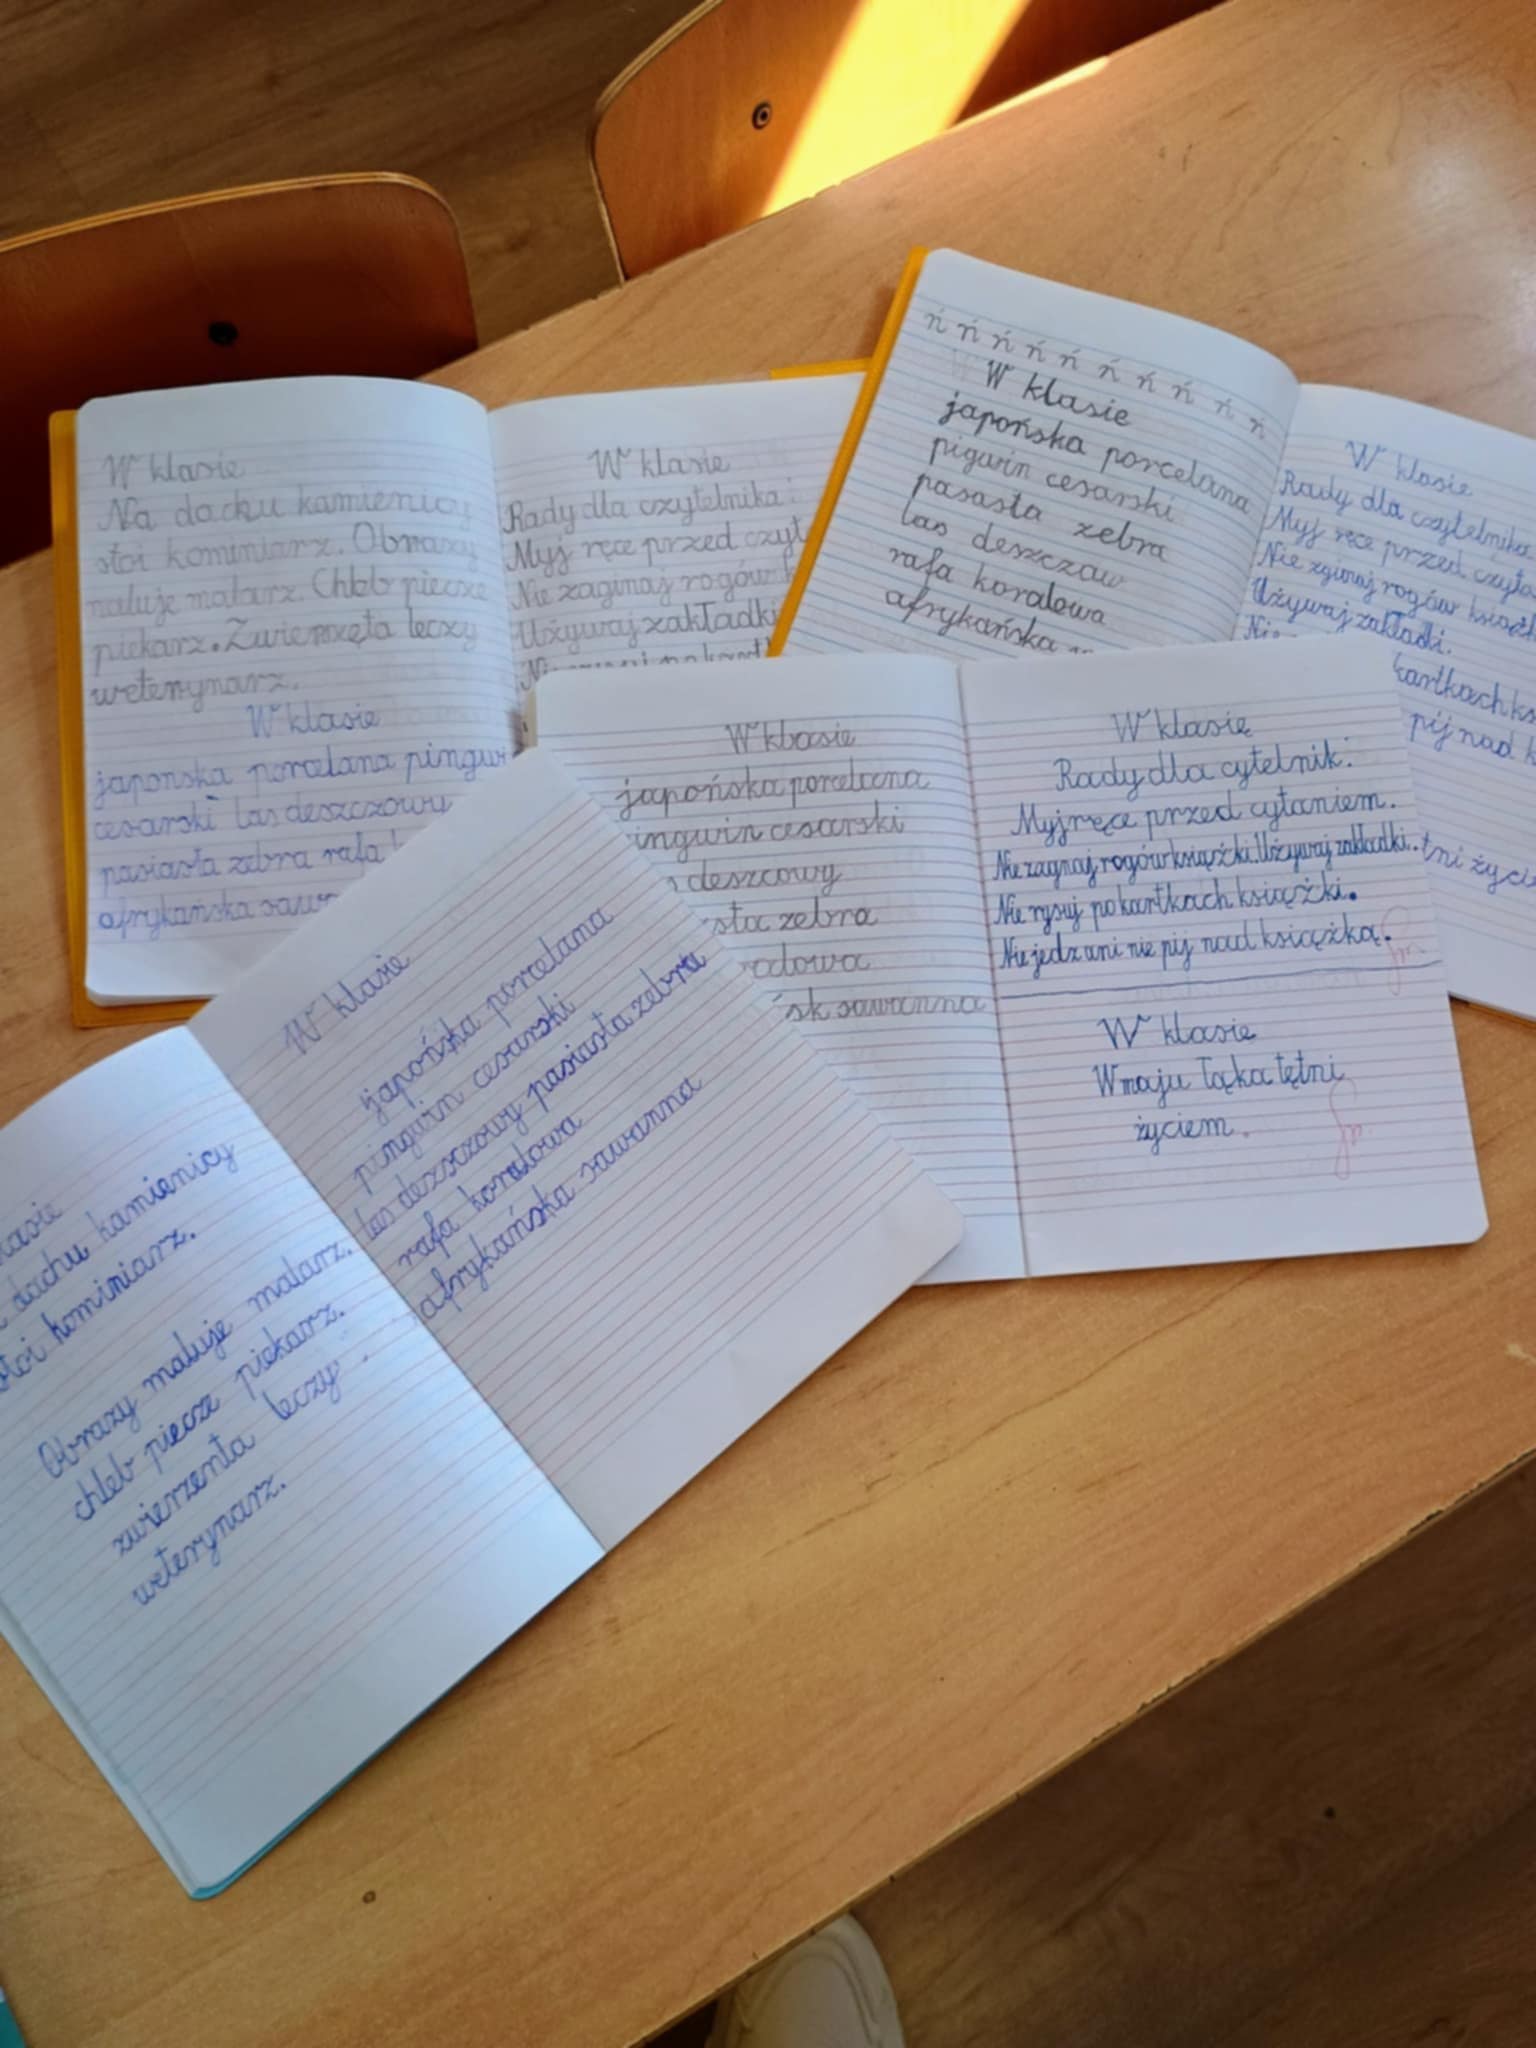 W klasie
Na dacku kamienicy
stoi kominiarz. Obrazy
maluje malarz. Chleb piecze
piekarz. Zwierzęta leczy
weterynarz.
W klasie
japonska porcelana pingwi
cesarski las deszczowy
pasiasta zebra rafa
afrykańska saw
W klasie
Rady dla czytelnika i
Myj ręce przed czyt
Nie zaginaj rogów k
Używaj zakładki
ń ń ń ń ń ń ń ń ń ń
W klasie
japońska porcelana
pigwin cesarski
pasasta zebra
las deszczow
rafa koralowa
afrykańska
W klasie
Rady dla czytelnika
Myj ręce przed czyta
Nie zginaj rogów książk
Używaj zakładki.
Nie
kartkach ks
pij nad k
tni życie
W klasie
japońska porcelana
ingwin cesarski
deszcowy
sta zebra
adowa
sk sawanna
W klasie
Rady dla cytelnik.
Myj ręce przed cytaniem.
Nie zagnaj rogów książki. Używaj zakładki.
Nie rysuj po kartkach książki.
Nie jedz ani nie pij nad książką.
W klasie
W maju łąka tętni
życiem.
asie
dachu kamienicy
stoi kominiarz.
Obrazy maluje malarz.
chleb piecze piekarz.
zwierzenta leczy.
weterynarz.
W klasie
japońska porcelana
pingwin cesarski
las deszczowy pasiasta zebra
rafa koralowa
afrykańska sawanna